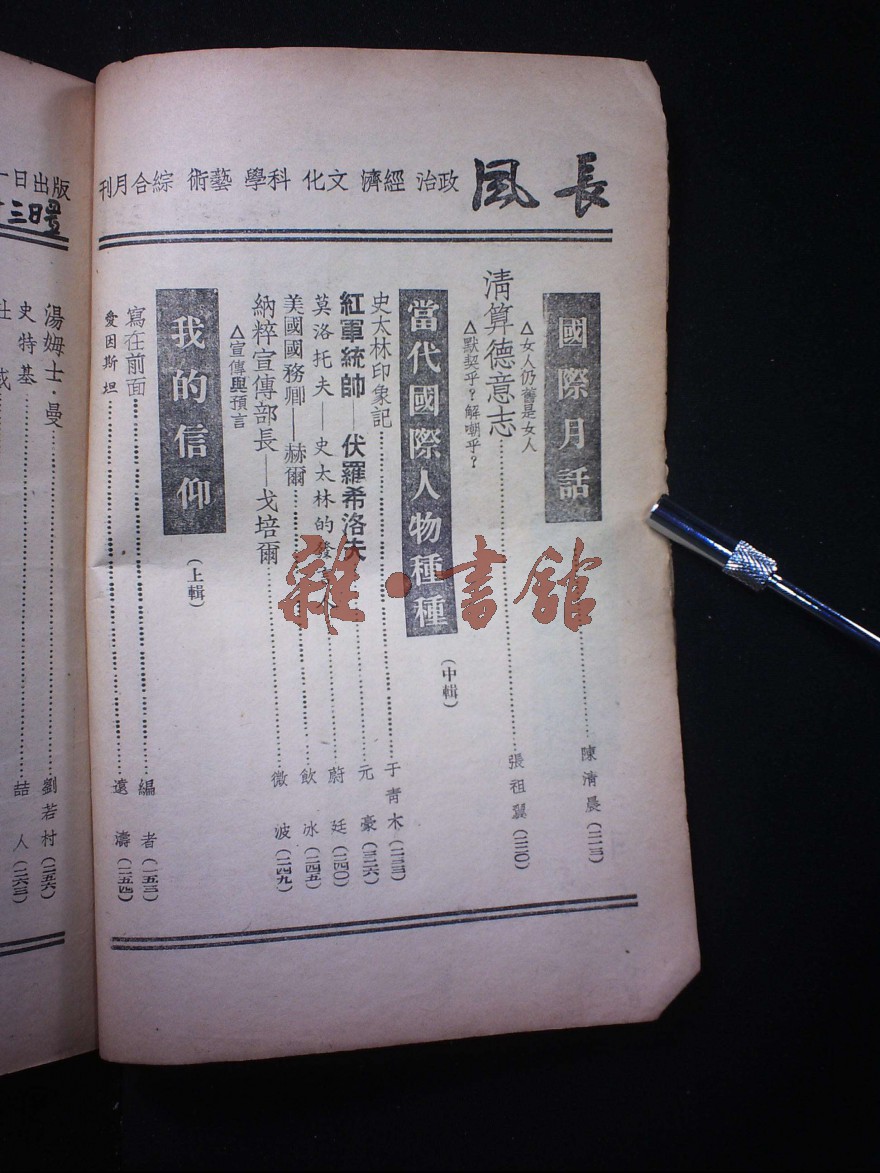 長風
政治 經濟 文化 科學 藝術 綜合月刊
國際月話
陳清晨(二一三)
△女人仍舊是女人
清算德意志
張祖翼(二二〇)
△默契乎?解嘲乎?
當代國際人物種種
(中輯)
史太林印象記
于青木(二三三)
紅軍統帥——伏羅希洛夫
元豪(二三六)
莫洛托夫——史太林的發
蔚廷(二四〇)
美國國務卿——赫爾
飲冰(二四五)
納粹宣傳部長——戈培爾
微波(二四九)
△宣傳與預言
我的信仰
(上輯)
寫在前面
編者(一五三)
愛因斯坦
遠濤(二五四)
一日出版
三日号
湯姆士·曼
劉若村(二五六)
史特基
喆人(二六三)
杜威
雜·書館